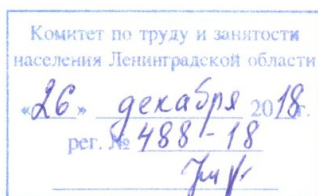 Комитет по труду и занятости
населения Ленинградской области
«26» декабря 2018г.
рег. № 488-18